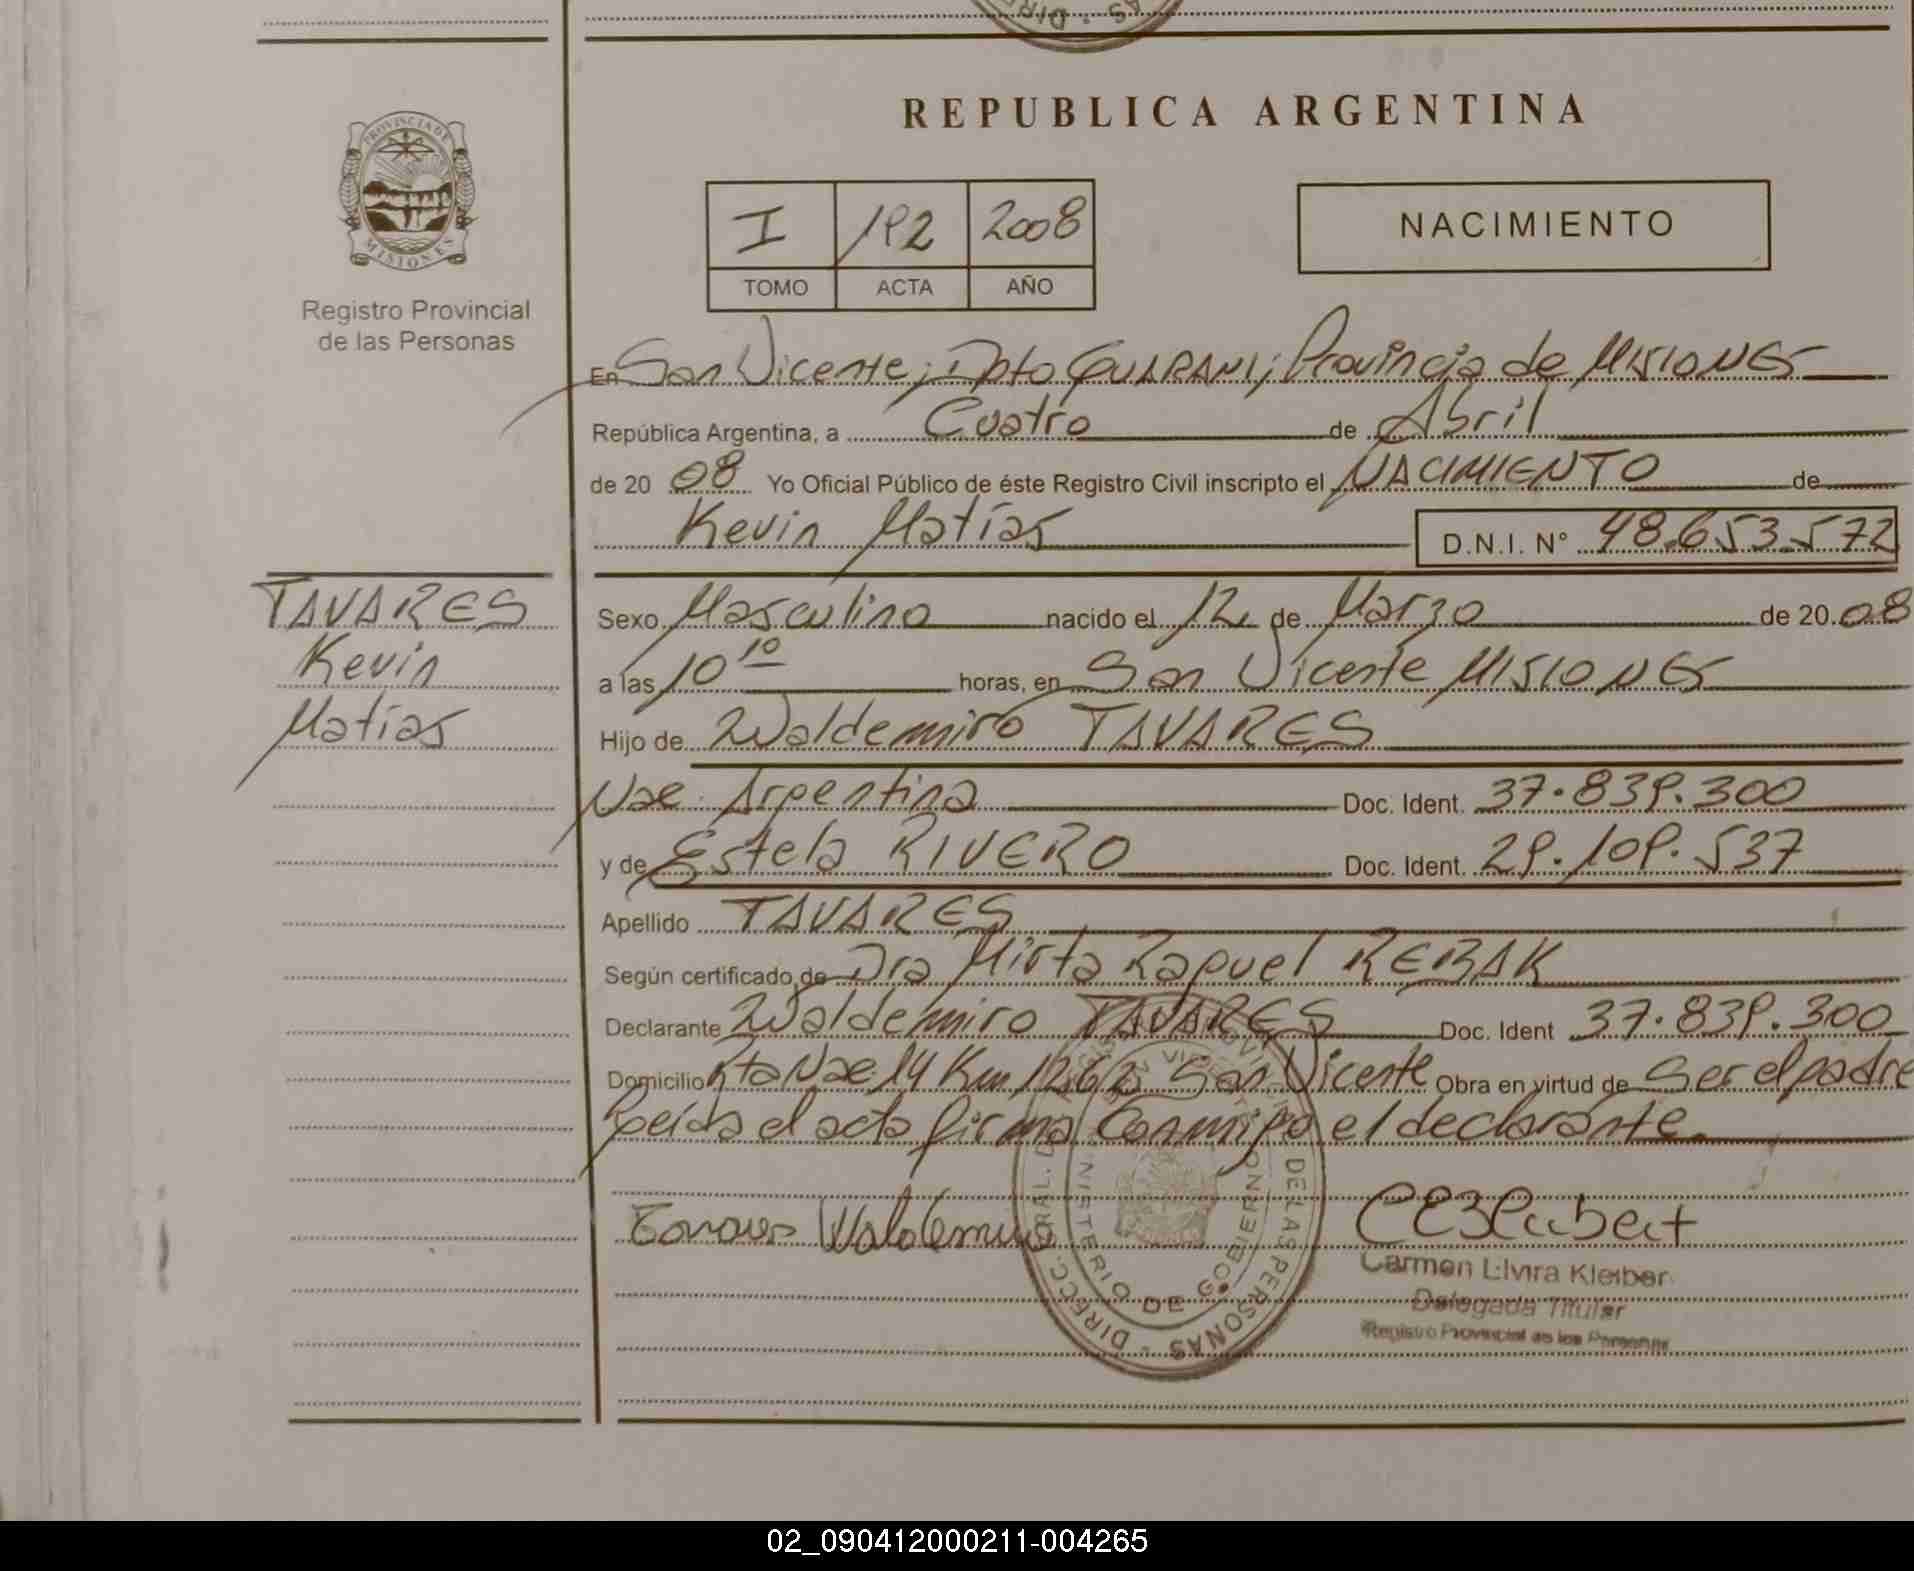 REPUBLICA ARGENTINA
PROVINCIA DE
MISIONES
Registro Provincial
de las Personas
I 192 2008
TOMO ACTA AÑO
NACIMIENTO
En San Vicente; Dpto GUARANI; Provincia de MISIONES
República Argentina, a Cuatro de Abril
de 2008 Yo Oficial Público de éste Registro Civil inscripto el NACIMIENTO de
Kevin Matías D.N.I. N° 48.653.572
TAVARES
Kevin
Matías
Sexo Masculino nacido el 12 de Marzo de 2008
a las 10 10 horas, en San Vicente MISIONES
Hijo de Waldemiro TAVARES
Nac. Argentina Doc. Ident. 37.839.300
y de Estela RIVERO Doc. Ident. 29.109.537
Apellido TAVARES
Según certificado de Dra Mirta Raquel REBAK
Declarante Waldemiro TAVARES Doc. Ident 37.839.300
Domicilio Rta Nac 14 Km 1262 San Vicente Obra en virtud de Ser el padre
Leída el acta firma Conmigo el declarante.
Tavares Waldemiro
Carmen Elvira Kleiber
Delegada Titular
Registro Provincial de las Personas
DIRECC. GRAL. DE LAS PERSONAS
MINISTERIO DE GOBIERNO
02_090412000211-004265